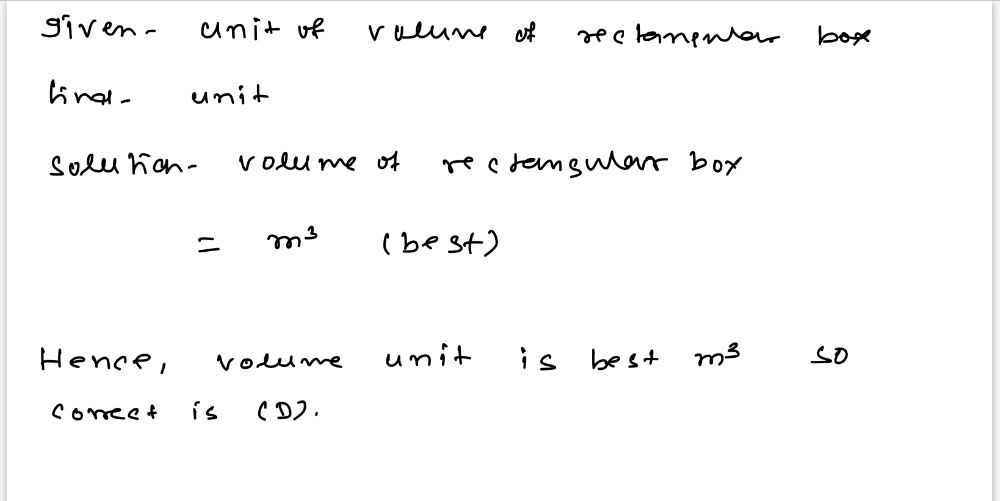 given - unit of volume of rectangular box
find - unit
solution - volume of rectangular box
= m³ (best)
Hence, volume unit is best m³ so
correct is (D).